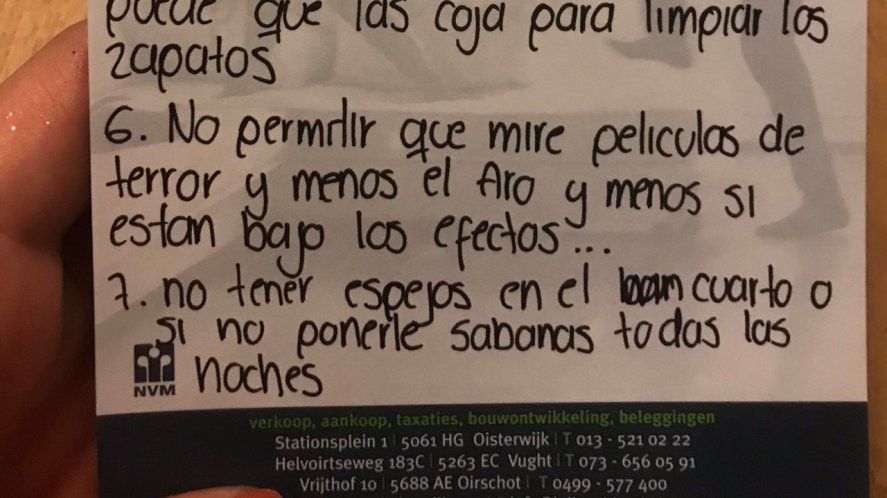 puede que las coja para limpiar los
zapatos
6. No permitir que mire peliculas de
terror y menos el Aro y menos si
estan bajo los efectos...
7. no tener espejos en el cuarto o
si no ponerle sabanas todas las
noches
NVM
verkoop, aankoop, taxaties, bouwontwikkeling, beleggingen
Stationsplein 1 | 5061 HG Oisterwijk | T 013 - 521 02 22
Helvoirtseweg 183C | 5263 EC Vught | T 073 - 656 05 91
Vrijthof 10 | 5688 AE Oirschot | T 0499 - 577 400